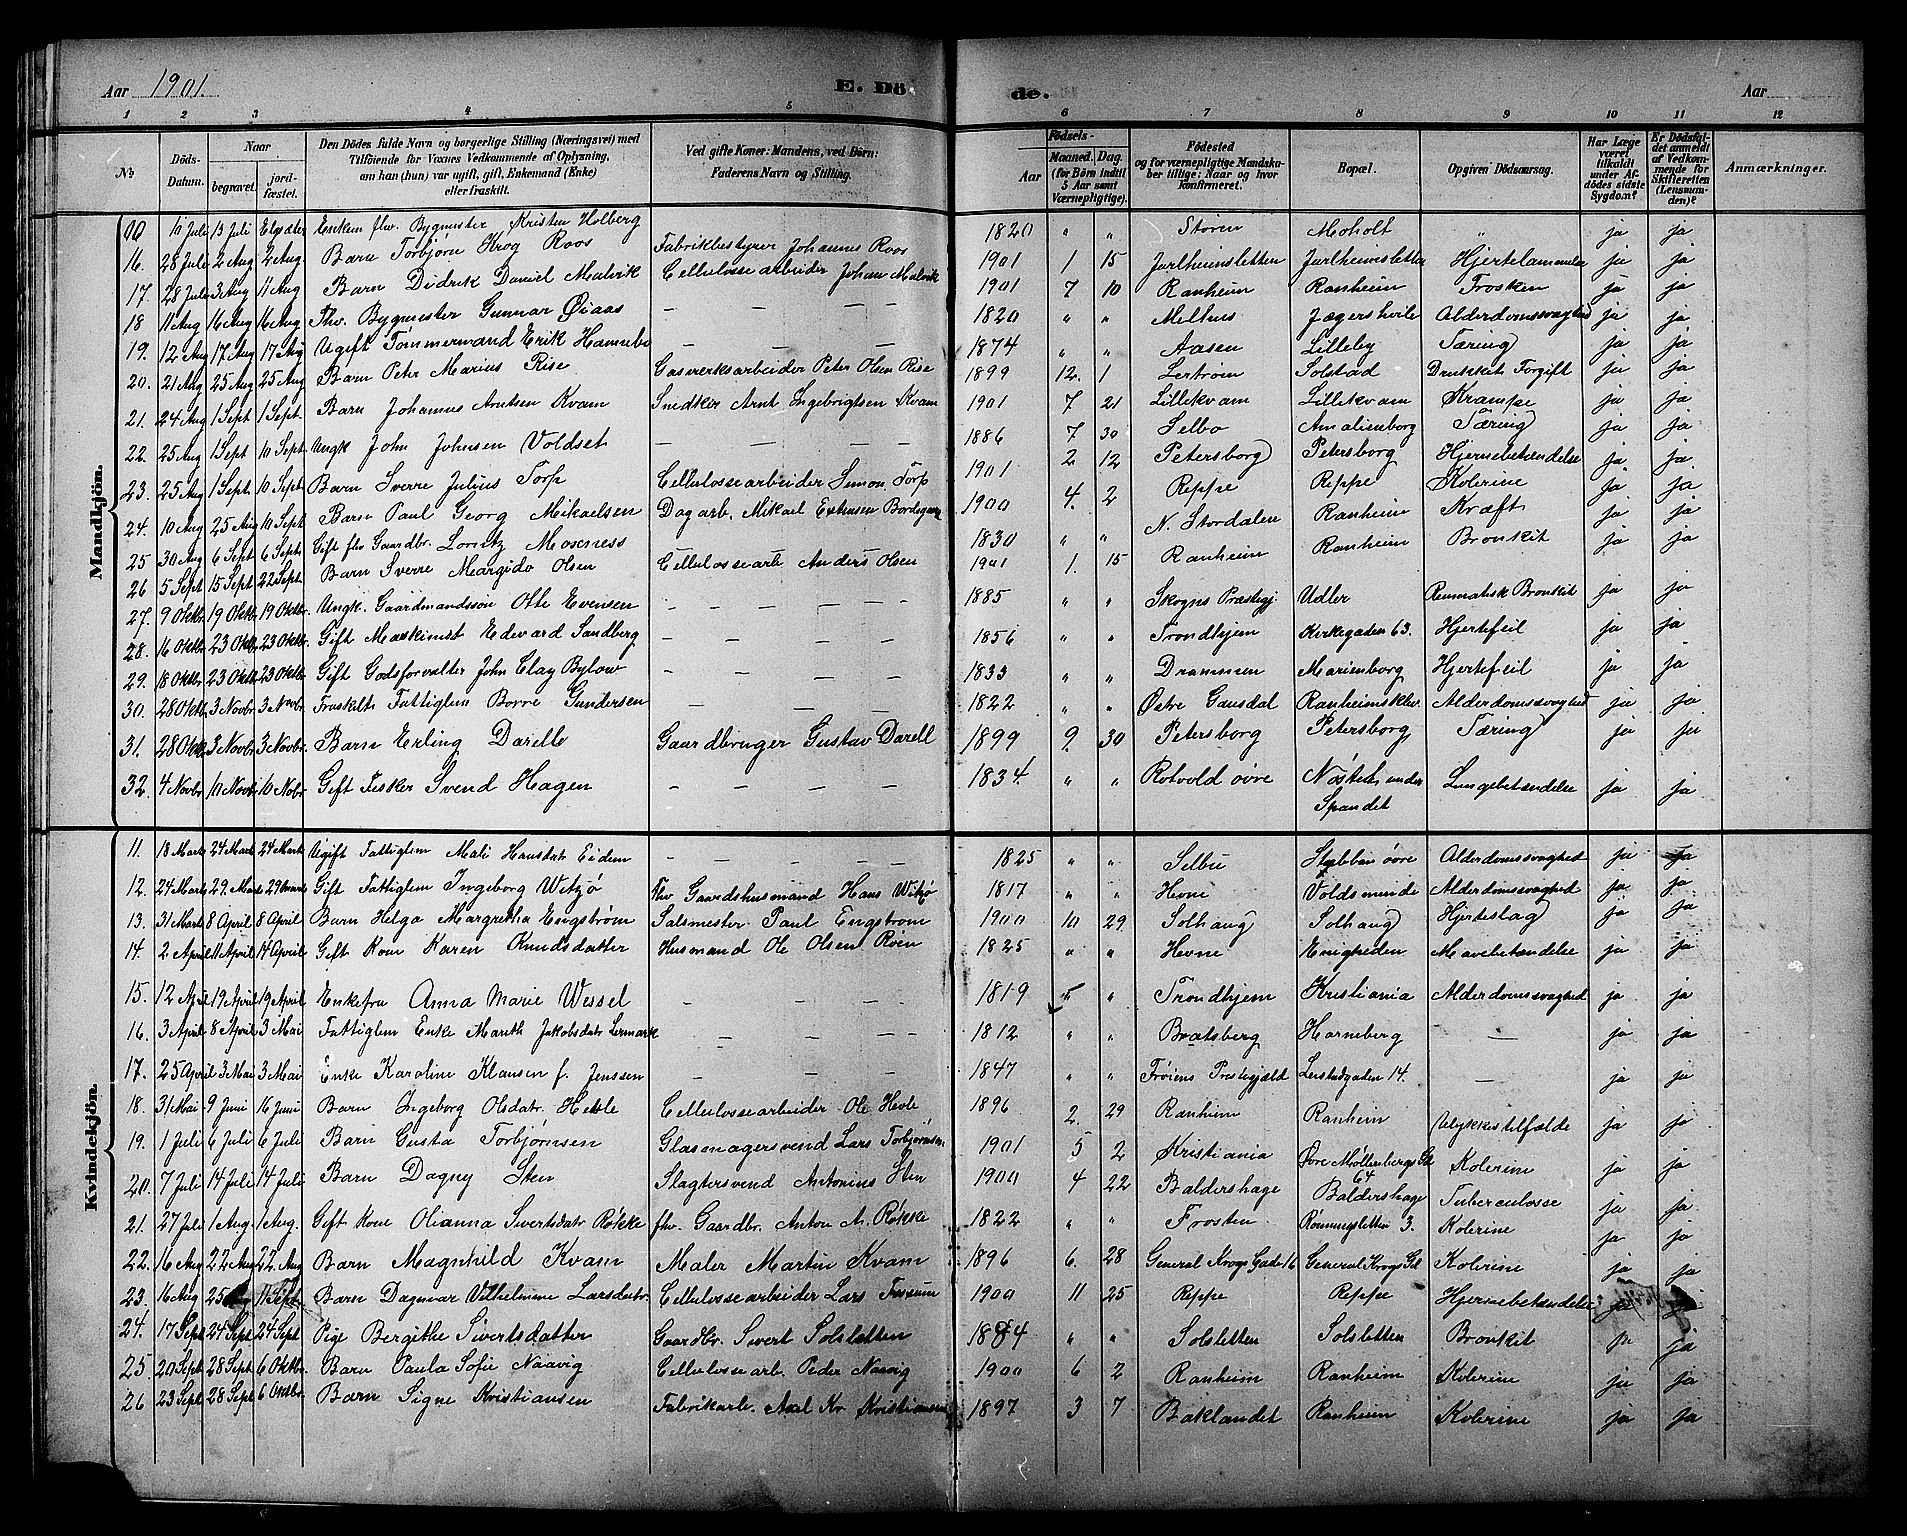 Aar 1901. E. Dö de. Aar
1 2 3 4 5 6 7 8 9 10 11 12
№ Döds-Datum. Naar begravet. jord-fæstet. Den Dödes fulde Navn og borgerlige Stilling (Næringsvei) med Tilföiende for Voxnes Vedkommende af Oplysning, om han (hun) var ugift, gift, Enkemand (Enke) eller fraskilt. Ved gifte Koner: Mandens, ved Börn: Faderens Navn og Stilling. Födsels- Aar Maaned. Dag. (for Börn indtil 5 Aar samt Værnepligtige). Födested og for værnepligtige Mandska-ber tillige: Naar og hvor konfirmeret. Bopæl. Opgiven Dödsaarsag. Har Læge været tilkaldt under Af-dödes sidste Sygdom? Er Dödsfal-det anmeldt af Vedkom-mende for Skifteretten (Lensman-den)? Anmærkninger.
Mandkjön.
10 Juli 13 Juli Enkem fhv. Bygmester Kristen Holberg 1820 " " Støren Moholt " ja ja
16. 28 Juli 2 Aug 2 Aug Barn Torbjørn Krog Roos Fabrikbestyrer Johannes Roos 1901 1 15 Jarlheimsletten Jarlheimsletten Hjertelammelse ja ja
17. 28 Juli 3 Aug 11 Aug Barn Didrik Daniel Malvik Cellulossearbeider Johan Malvik 1901 7 10 Ranheim Ranheim Trosken ja ja
18 11 Aug 16 Aug 16 Aug Fhv. Bygmester Gunnar Øiaas — — — 1820 " " Melhus Jægershvile Alderdomssvaghed ja ja
19. 12 Aug 17 Aug 17 Aug Ugift Tømmermand Erik Hammebo — — — 1874 " " Aasen Lilleby Tæring ja ja
20. 21 Aug 25 Aug 25 Aug Barn Peter Marius Rise Gasverksarbeider Peter Olsen Rise 1899 12. 1 Solstad Drukket Forgift ja ja
21. 24 Aug 1 Sept 1 Sept. Barn Johannes Arntsen Kvam Snedker Arnt Ingebrigtsen Kvam 1901 7 21 Lillekvam Lillekvam Krampe ja ja
22. 25 Aug 1 Sept 10 Sept Ungk John Johnsen Voldset — — — 1886 7 30 Selbo Amalienborg Tæring ja ja
23. 25 Aug 1 Sept. 10 Sept. Barn Sverre Julius Torp Cellulossearbeider Simon Torp 1901 2 12 Petersborg Petersborg Hjernebetændelse ja ja
24. 10 Aug 25 Aug 10 Sept Barn Paul Georg Mikaelsen Dagarb. Mikael 1900 4. 2 Reppe Reppe Kolerine ja ja
25 30 Aug 6 Sept 6 Sept. Gift fhv Gaardbr. Lorntz Moxness 1830 " " N. Stordalen Ranheim Kræft ja ja
26 5 Sept 15 Sept 22 Sept. Barn Sverre Margido Olsen Cellulossearb Anders Olsen 1901 1. 15 Ranheim Ranheim Bronkit ja ja
27. 9 Oktbr 19 Oktbr 19 Oktbr Ungk. Gaardmandssøn Otte Evensen — — — — 1885 " " Skogns Præstegj. Udler Reumatisk Bronkit ja ja
28. 16 Oktbr 23 Oktbr 23 Oktbr Gift Maskinist Edevard Sandberg — — — 1856 " " Trondhjem Kirkegaden 63. Hjertefeil ja ja
29. 18 Oktbr 23 Oktbr 23 Oktbr Gift Godsforvalter John Clay Bylow — — — — 1833 " " Drammen Marienborg Hjertefeil ja ja
30. 28 Oktbr 3 Novbr 3 Novbr Fraskilt Fattiglem Borre Gundersen — — — 1822 " " Østre Gausdal Ranheimsklev. Alderdomssvaghed ja ja
31. 28 Oktbr 3 Novbr 3 Novbr. Barn Erling Darelle Gaardbruger Gustav Darell 1899 9. 30 Petersborg Petersborg Tæring ja ja
32. 4 Novbr 10 Novbr 10 Nobr. Gift Fisker Svend Hagen — — — — 1834. " " Rotvold øvre Nøstet under Spandet Lungebetændelse ja ja
Kvindekjön.
11. 18 Marts 24 Marts 24 Marts Ugift Fattiglem Mali Hansdatr Eidem — — — — 1825 " " Selbu Stubban øvre Alderdomssvaghed ja ja
12. 24 Marts 29 Marts 29 Marts Gift Fattiglem Ingeborg Witzø Fhv Gaardshusmand Hans Witzø 1817 " " Hevne Voldsminde Alderdomssvaghed ja ja
13. 31 Marts 8 April 8 April Barn Helga Margretha Engstrøm Salsmester Paul Engstrøm 1900 10 29 Solhaug Solhaug Hjerteslag ja ja
14. 2 April 11 April 14 April Gift Kone Karen Knudsdatter Husmand Ole Olsen Røen 1825 " " Hevne Enigheden Mavebetændelse ja ja
15. 12 April 19 April 19 April Enkefru Anna Marie Wessel — — — 1819 " Trondhjem Kristiania Alderdomssvaghed ja ja
16. 3 April 8 April 3 Mai Fattiglem Enke Marith Jakobsdatr Lermark — — — 1812 " " Bratsberg Harneberg — ja ja
17. 25 April 3 Mai 3 Mai Enke Karoline Klausen f. Jenssen — — — — 1847 " " Frøiens Prestegjæld 14. — ja ja
18. 31 Mai 9 Juni 16 Juni Barn Ingeborg Olsdatr. Hevle Cellulossearbeider Ole Hevle 1896 2. 29 Ranheim Ranheim Ulykkestilfælde ja ja
19. 1 Juli 6 Juli 6 Juli Barn Gusta Torbjørnsen Glasmagersvend Lars Torbjørnsen 1901 5 2 Kristiania Øvre Møllenbergs Gd 64 Kolerine ja ja
20. 7 Juli 14 Juli 14 Juli Barn Dagny Sten Slagtersvend Antonius Sten 1900 4 22 Baldershage Baldershage Tuberculosse ja ja
21. 27 Juli 1 Aug 1 Aug. Gift Kone Olianna Sivertsdatr Røkke fhv. Gaardbr. Anton A. Røkke 1822 " " Frosten Rønningsletten 3. Kolerine ja ja
22. 16 Aug 22 Aug 22. Aug Barn Magnhild Kvam Maler Martin Kvam 1896 6. 28 General Krogs Gade 16 General Krogs Gd Kolerine ja ja
23. 16 Aug 25 11 Sept Barn Dagmar Wilhelmine Larsdatr. Cellulossearbeider Lars 1900 11 25 Reppe Reppe Hjernebetændelse ja
24. 17 Sept 24 Sept 24 Sept Pige Bergithe Sivertsdatter Gaardbr. Sivert Solsletten 1884 " " Solsletten Solsletten Bronkit ja ja
25. 20 Sept 28 Sept 6 Oktbr. Barn Paula Sofie Naavig Cellulossearb. Peder Naavig 1900 6 2 Ranheim Ranheim Kolerine ja ja
26 23 Sept 28 Sept 6 Oktbr. Barn Signe Kristiansen Fabrikarb. Axel Kr. Kristiansen 1897 3 7 Baklandet Ranheim Kolerine ja ja